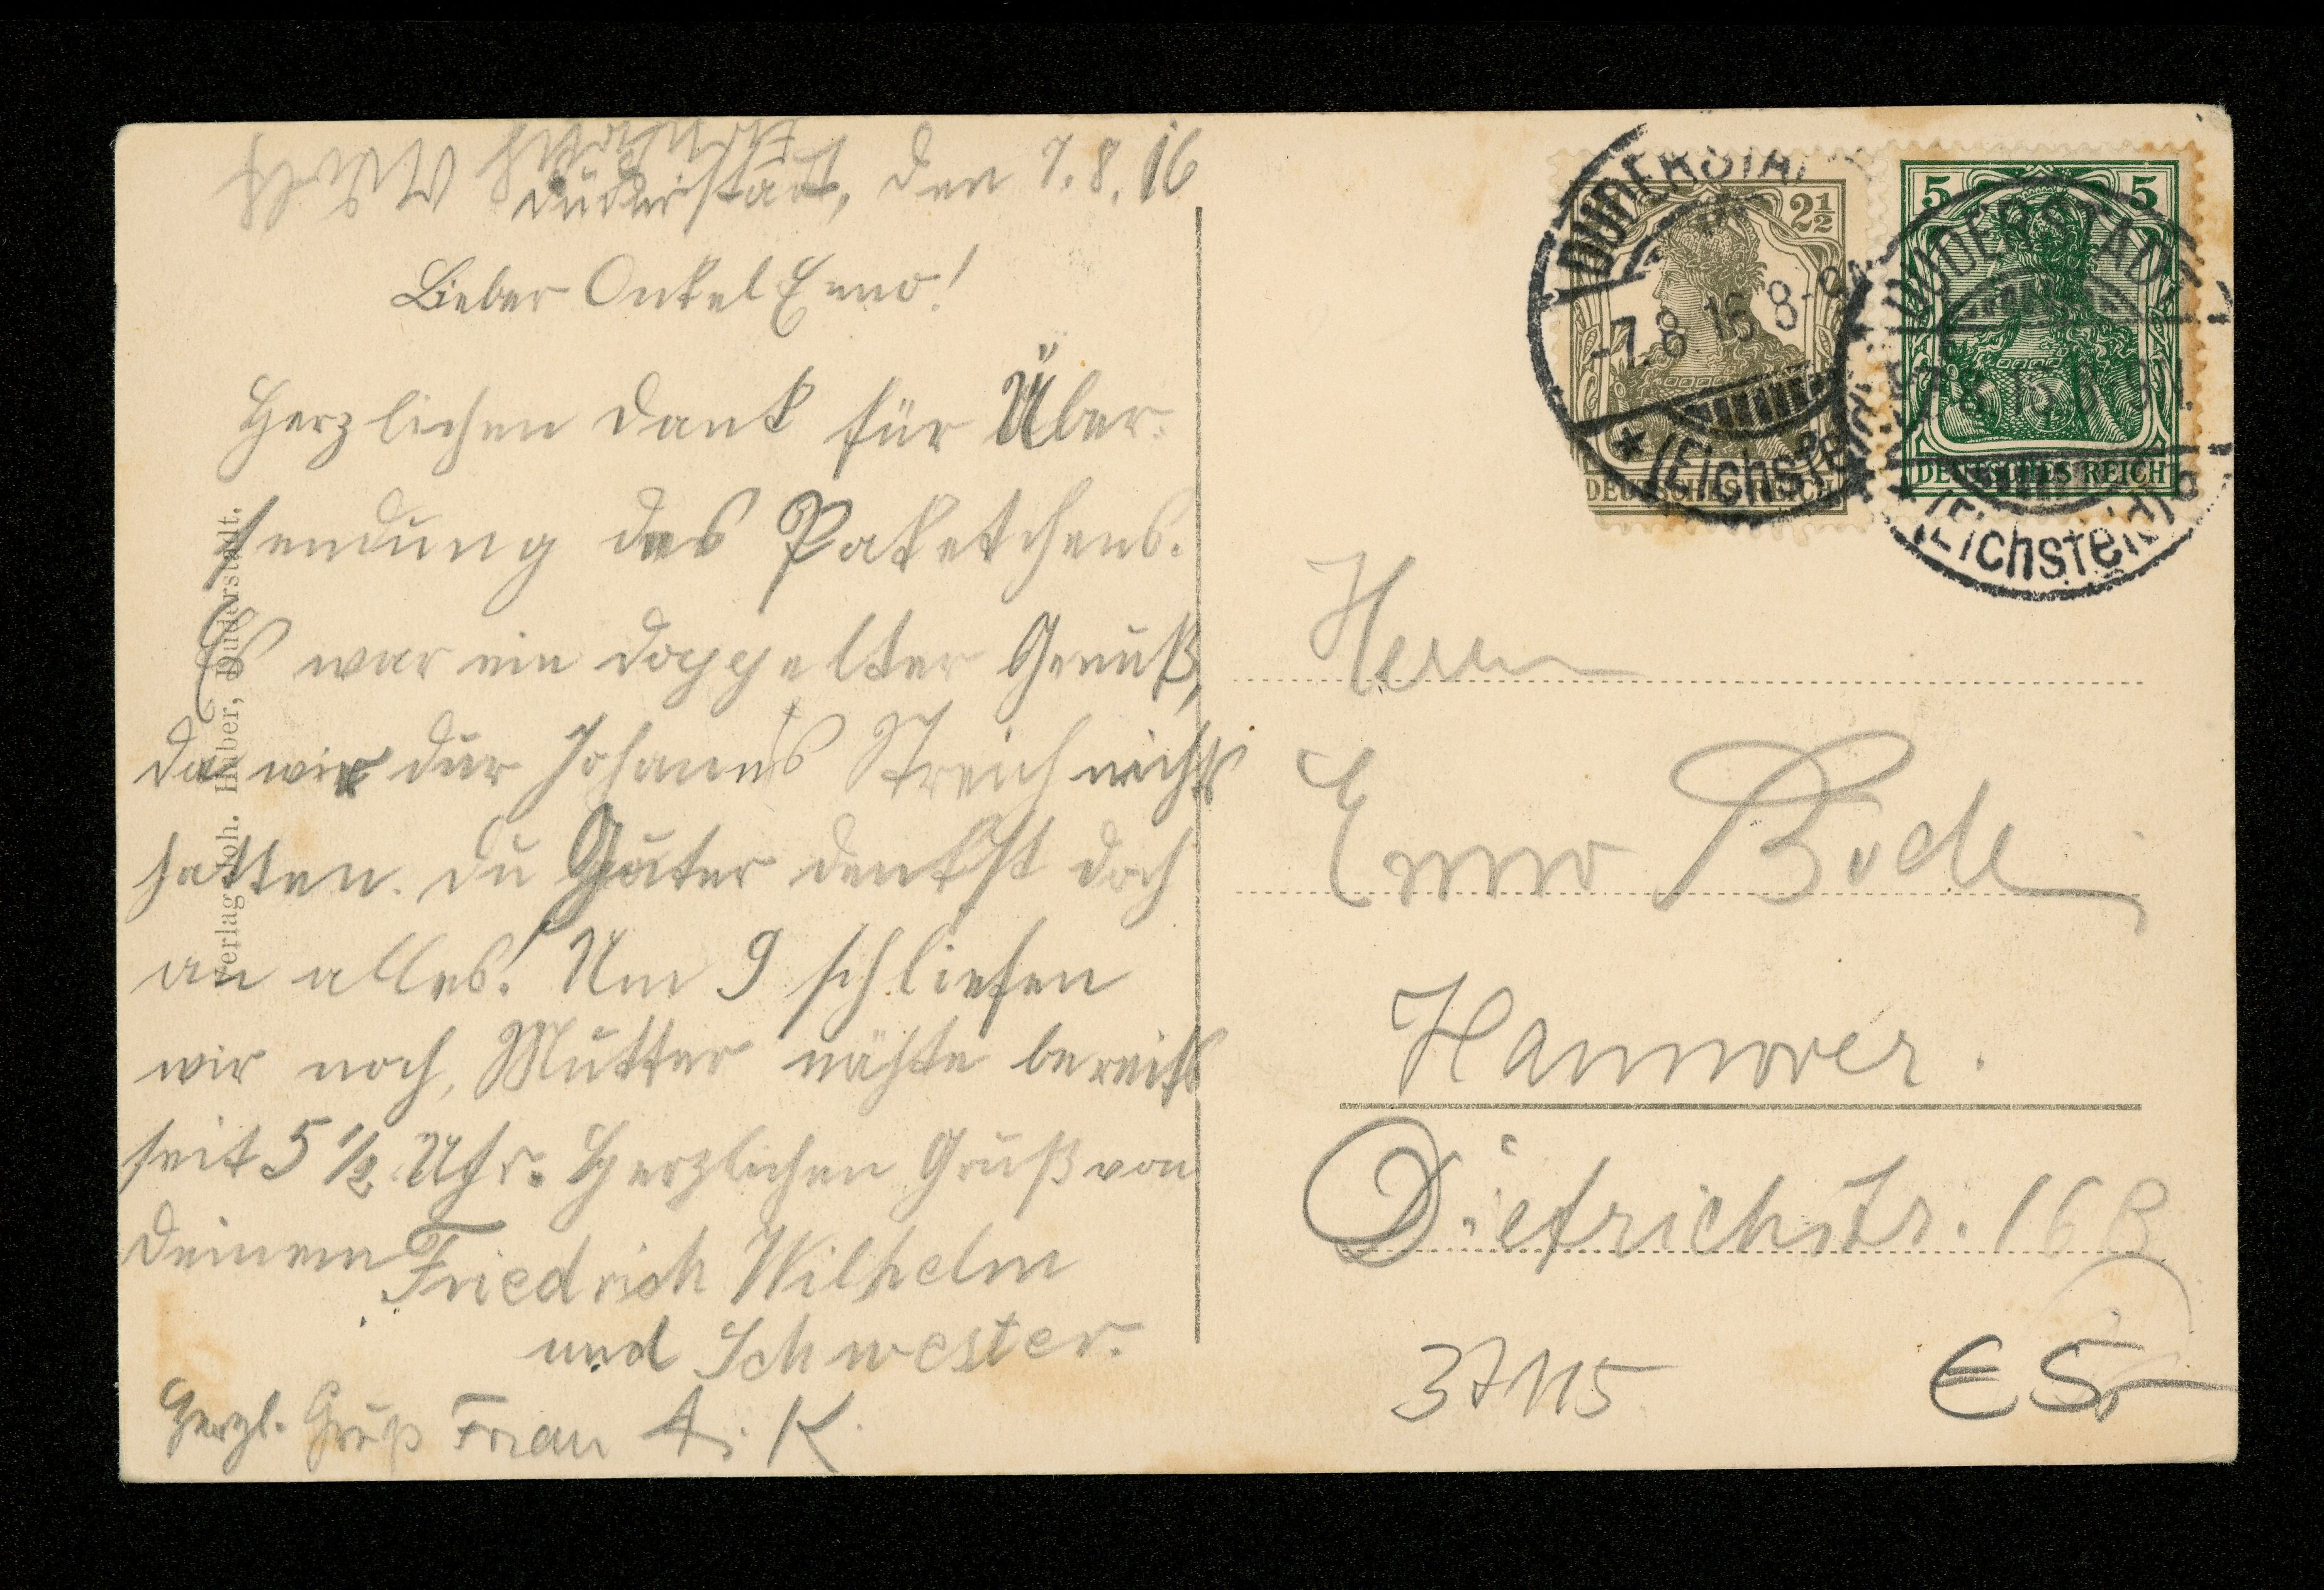 Duderstadt, den 7.8.16
Lieber Onkel Enno!
Herzlichen Dank für Über-
sendung des Paketchens.
Es war ein doppelter Genuß,
da wir dur Johanns Streich nichts
hatten. Du Guter denkst doch
an alles! Um 9 schliefen
wir noch, Mutter nähte bereits
seit 5 1/2 Uhr. Herzlichen Gruß von
Deinem Friedrich Wilhelm
und Schwester.
Herzl. Gruß Frau A. K.
Verlag Joh. Huber, Duderstadt.
2½
DUDERSTADT
-7.8.16 8-9
* (Eichsfeld)
DEUTSCHES REICH
5 5
DUDERSTADT
(Eichsfeld)
DEUTSCHES REICH
Herrn
Enno Bode
Hannover.
Dietrichstr. 16 B
37115
€ 5,-